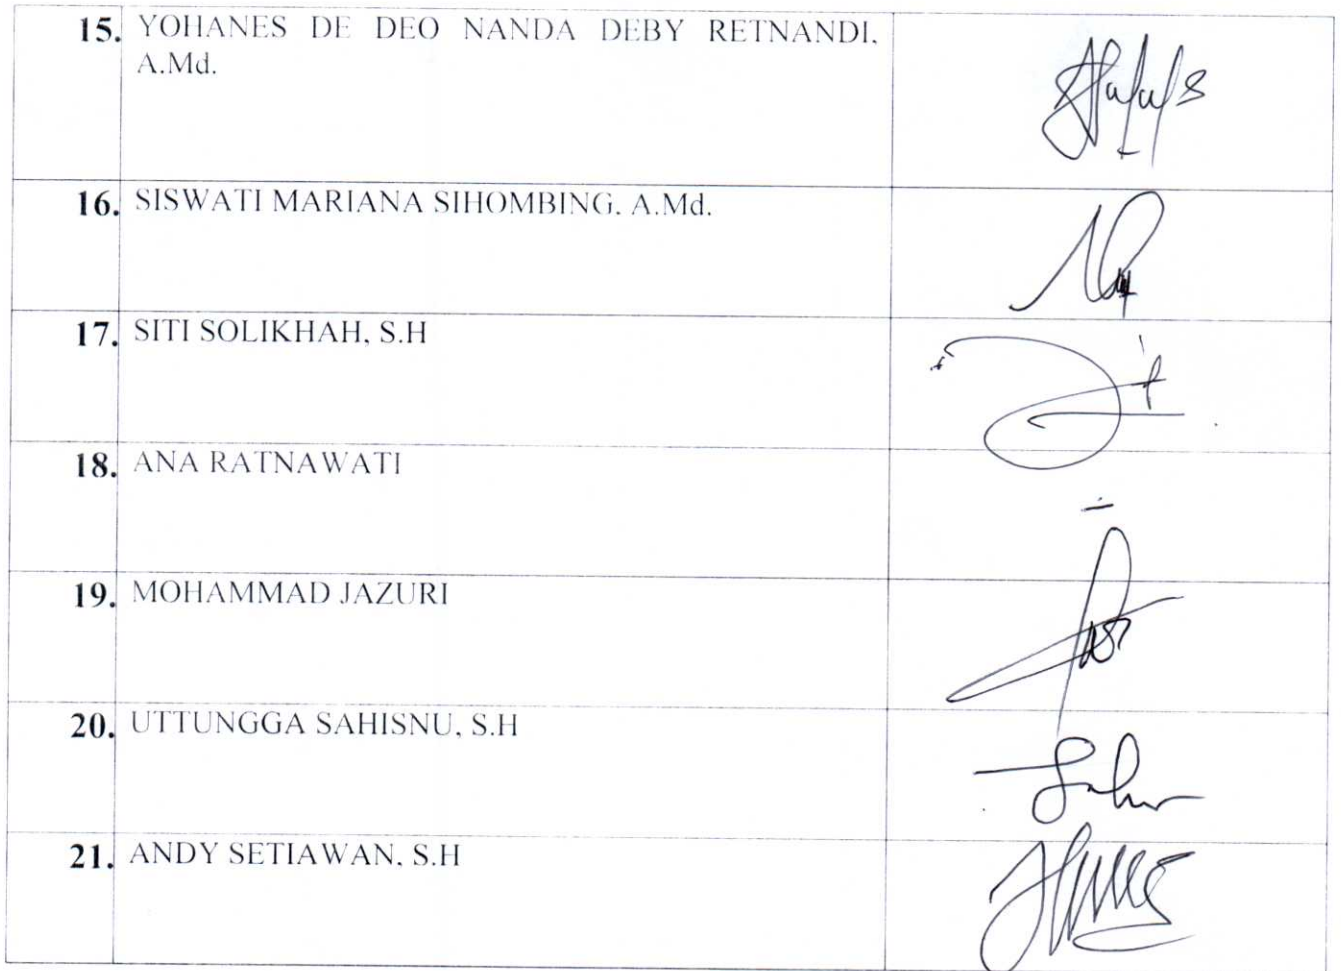 15. YOHANES DE DEO NANDA DEBY RETNANDI,
A.Md.
16. SISWATI MARIANA SIHOMBING, A.Md.
17. SITI SOLIKHAH, S.H
18. ANA RATNAWATI
19. MOHAMMAD JAZURI
20. UTTUNGGA SAHISNU, S.H
21. ANDY SETIAWAN, S.H